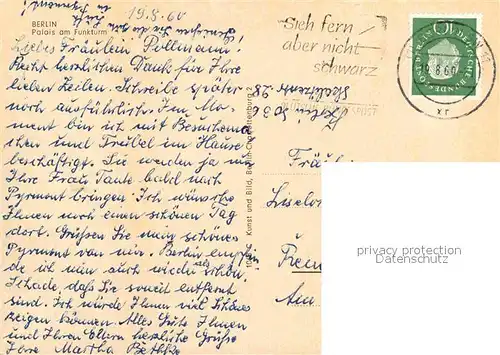 19.8.60
BERLIN
Palais am Funkturm
Liebes Fräulein Pollmann!
Recht herzlichen Dank für Ihre
lieben Zeilen. Schreibe später
noch ausführlich. Im Mo-
ment bin ich mit Besuchen
und Trubel im Hause
beschäftigt. Sie werden ja
Ihre Frau Tante bald nach
Pyrmont bringen. Ich wünsche
Ihnen noch einen schönen Tag
dort. Grüßen Sie mein schönes
Pyrmont von mir. Berlin emp-
ich nun auch wieder als schön.
Schade, daß Sie soweit entfernt
sind. Ich würde Ihnen viel Schönes
zeigen können. Alles Gute Ihnen
und Ihren Eltern herzliche Grüße
Ihre Martha
Kunst und Bild, Berlin-Charlottenburg 2
Sieh fern
aber nicht
schwarz
DEUTSCHE BUNDESPOST BERLIN
19.8.60
Berlin SO 36
28
Fräul
Liselo
Am
privacy protection
Datenschutz